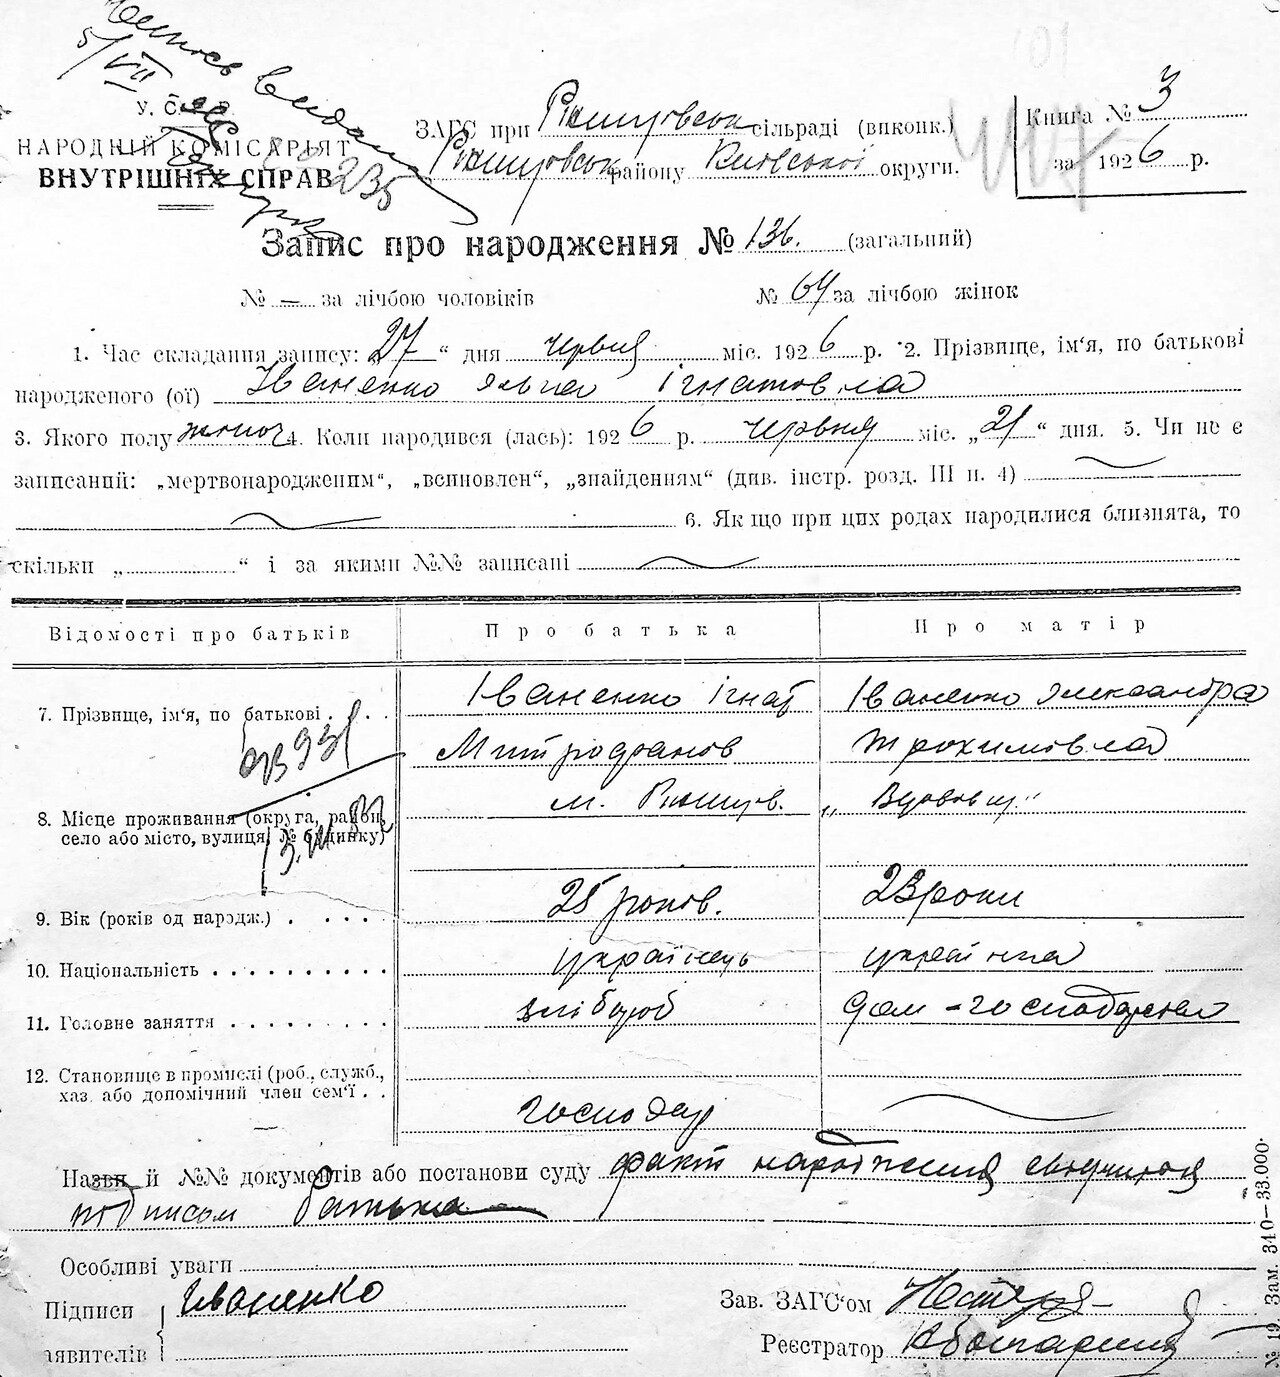 Випись видана
5/VII
235
У. С.
НАРОДНІЙ КОМІСАРІЯТ
ВНУТРІШНІХ СПРАВ
ЗАГС при Ржищовськ сільраді (виконк.)
Ржищовськ району Київської округи.
Книга № 3
за 1926 р.
Запис про народження № 136. (загальний)
№ — за лічбою чоловіків № 64 за лічбою жінок
1. Час складання запису: 27 “ дня червня міс. 1926 р. 2. Прізвище, ім'я, по батькові
народженого (ої) Іваненко Ігнатовна
3. Якого полу жіноч 4. Коли народився (лась): 1926 р. червня міс. „21“ дня. 5. Чи не є
записаний: „мертвонародженим“, „всиновлен“, „знайденням“ (див. інстр. розд. III п. 4)
6. Як що при цих родах народилися близнята, то
скільки „ “ і за якими №№ записані
Відомості про батьків Про батька Про матір
7. Прізвище, ім'я, по батькові Іваненко Ігнат Іваненко Олександра
Митрофанов Трохимовна
8. Місце проживання (округа, район, м. Ржищів. „ Вдовиц."
село або місто, вулиця, № будинку)
9. Вік (років од народж.) 25 років. 23 роки
10. Національність українець українка
11. Головне заняття хлібороб дом-господарка
12. Становище в промислі (роб., служб.,
хаз. або допомічний член сем'ї господар
Назви й №№ документів або постанови суду факт народження свідчиться
підписом батька
Особливі уваги
Підписи Иваненко
заявителів
Зав. ЗАГС'ом
Реєстратор
№ 19. Зам. 310—33.000.